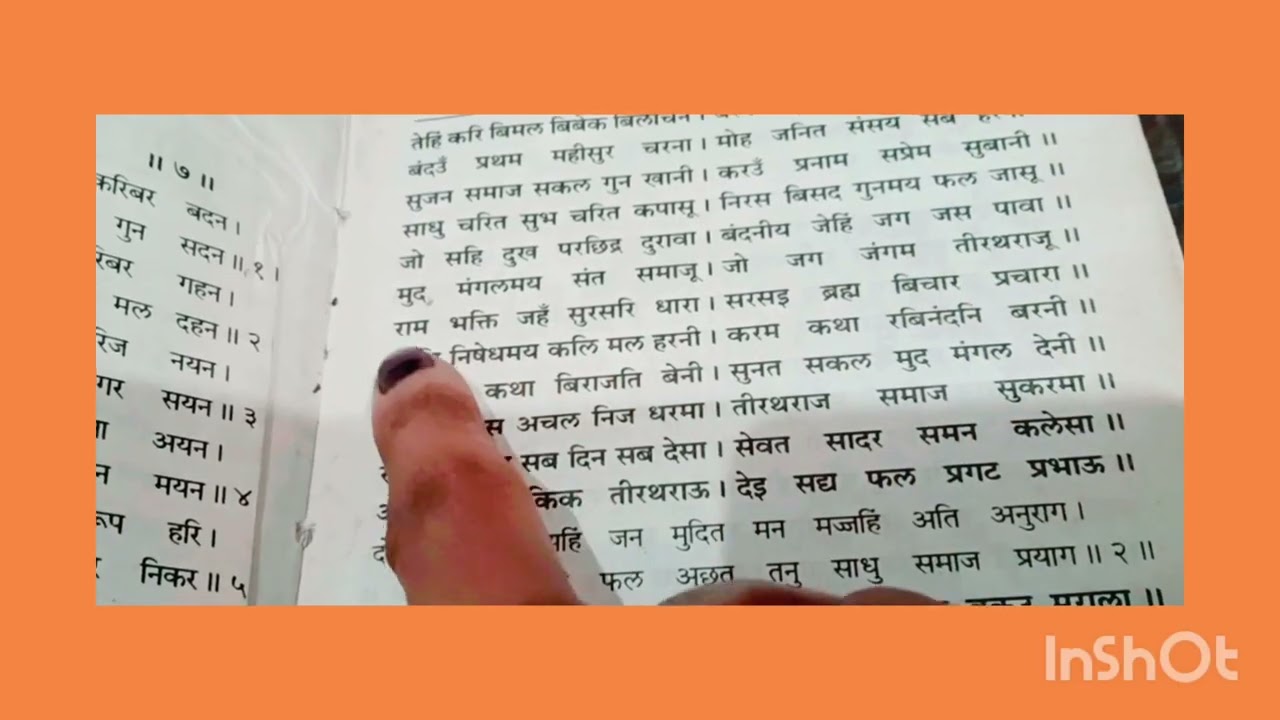 ॥ ७ ॥
करिबर बदन।
गुन सदन॥ १।
गहन।
मल दहन॥ २
नयन।
सयन॥ ३
अयन।
मयन॥ ४
हरि।
निकर॥ ५
तेहिं करि बिमल बिबेक बिलोचन।
बंदउँ प्रथम महीसुर चरना। मोह जनित संसय सब
सुजन समाज सकल गुन खानी। करउँ प्रनाम सप्रेम सुबानी॥
साधु चरित सुभ चरित कपासू। निरस बिसद गुनमय फल जासू॥
जो सहि दुख परछिद्र दुरावा। बंदनीय जेहिं जग जस पावा॥
मुद मंगलमय संत समाजू। जो जग जंगम तीरथराजू॥
राम भक्ति जहँ सुरसरि धारा। सरसइ ब्रह्म बिचार प्रचारा॥
निषेधमय कलि मल हरनी। करम कथा रबिनंदनि बरनी॥
कथा बिराजति बेनी। सुनत सकल मुद मंगल देनी॥
स अचल निज धरमा। तीरथराज समाज सुकरमा॥
सब दिन सब देसा। सेवत सादर समन कलेसा॥
किक तीरथराऊ। देइ सद्य फल प्रगट प्रभाऊ॥
झहिं जन मुदित मन मज्जहिं अति अनुराग।
फल अछत तनु साधु समाज प्रयाग॥ २॥
InShOt